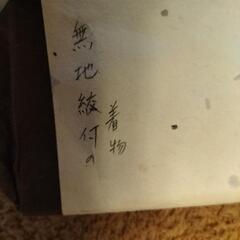 無地綾付の
着物